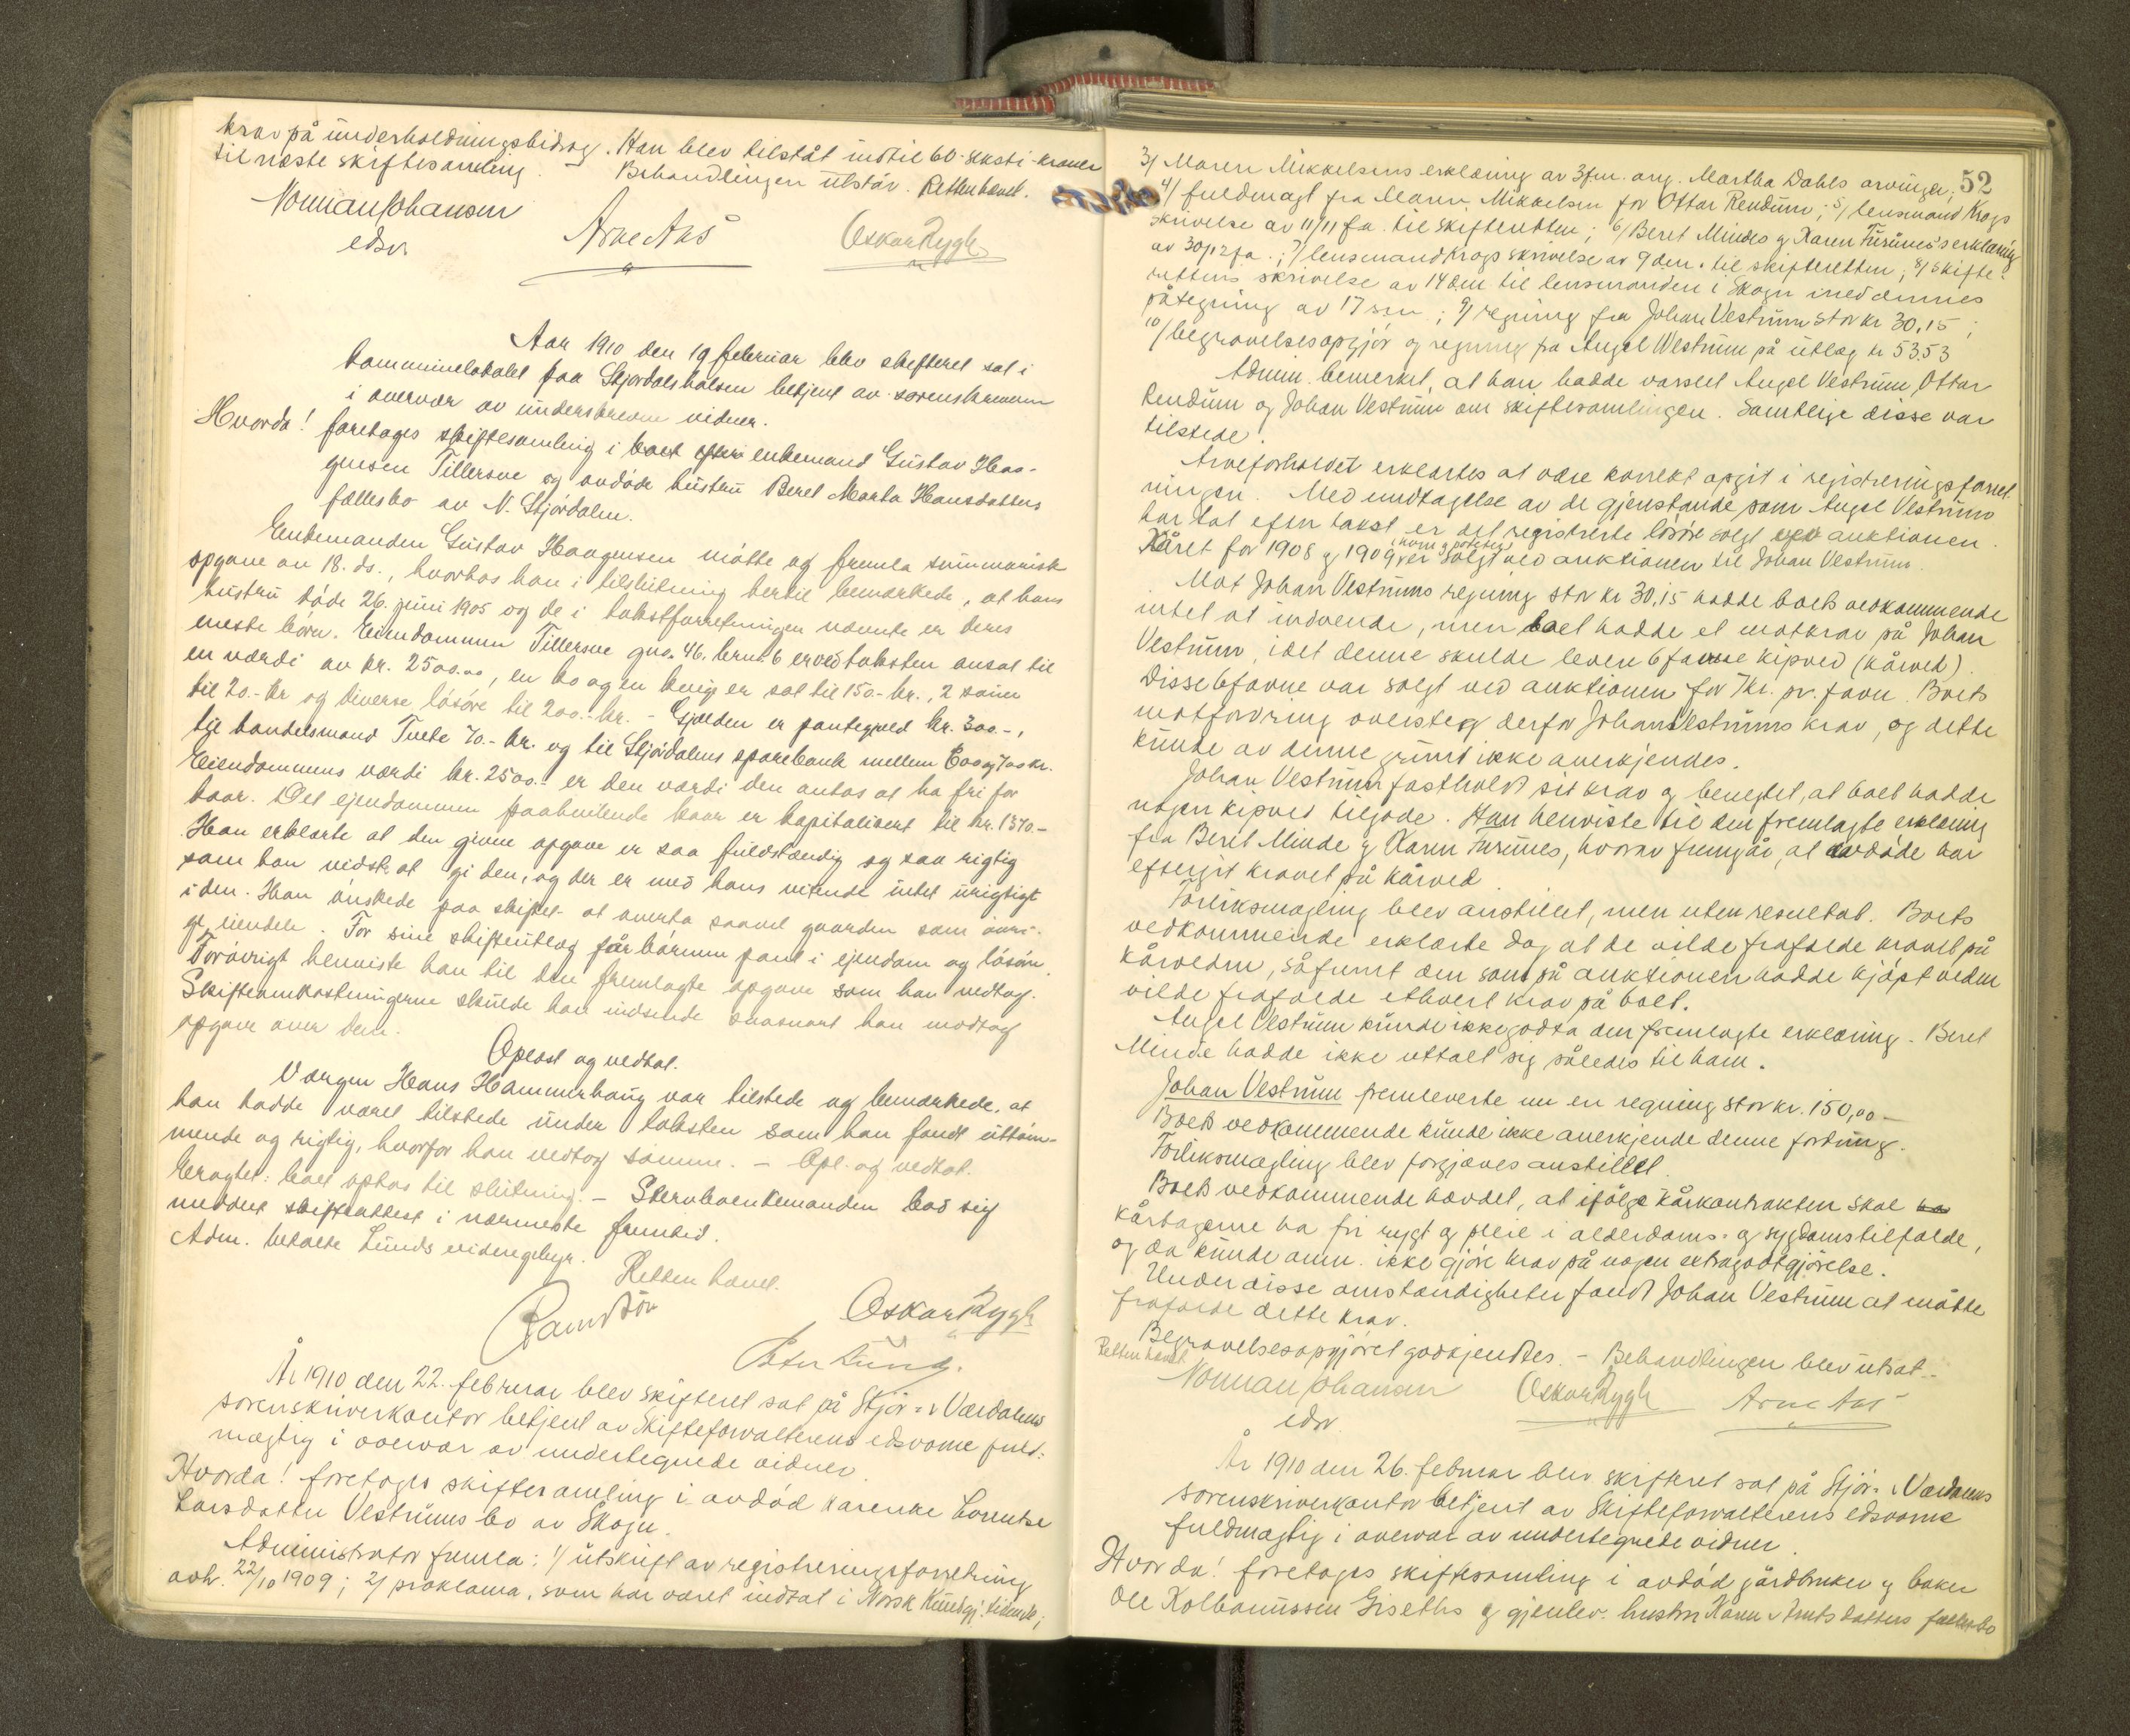 krav på underholdningsbidrag. Han blev tilståt indtil 60-seksti-kroner
til næste skiftesamling. – Behandlingen utstår. Retten hævet.
Norman Johansen
edsv.
Arne Aas
Oskar Rygh
Aar 1910 den 19 februar blev skifteret sat i
kommunelokalet paa Stjørdalshalsen betjent av sorenskriveren
i overvær av underskrevne vidner.
Hvorda! foretoges skiftesamling i boet efter enkemand Gustav Haa-
gensen Tillersve og avdøde hustru Beret Marta Hansdatters
fællesbo av N. Stjørdalen.
Enkemanden Gustav Haagensen møtte og fremla summarisk
opgave av 18. ds., hvorhos han i tilslutning hertil bemerkede, at hans
hustru døde 26. juni 1905 og de i takstforretningen nævnte er deres
eneste børn. Eiendommen Tillersve gno. 46, brno. 6 er ved taksten ansat til
en værdi av kr. 2500.00, en ko og en kvige er sat til 150.- kr., 2 sauer
til 20.- kr og diverse løsøre til 200.- kr. – Gjælden er pantegjæld kr. 300.-,
til handelsmand Tuete 70.- kr. og til Stjørdalens sparebank mellem 600 og 700 kr.
Eiendommens værdi kr. 2500.- er den værdi den antas at ha fri for
kaar. Det ejendommen paahvilende kaar er kapitalisert til kr. 1370.-
Han erklærte at den givne opgave er saa fuldstændig og saa rigtig
som han vidste at gi den, og der er med hans vitende intet urigtigt
i den. Han ønskede paa skiftet at overta saavel gaarden som øvri-
ge eiendele. For sine skifteutlæg får børnene pant i ejendom og løsøre.
Forøvrigt henviste han til den fremlagte opgave som han vedtog.
Skifteomkostningerne skulde han indsende saasnart han modtog
opgave over dem.
Oplæst og vedtat.
Værgen Hans Hammerhaug var tilstede og bemærkede, at
han hadde været tilstede under taksten som han fandt uttøm-
mende og rigtig, hvorfor han vedtog samme. – Opl. og vedtat.
Eragtet: boet optas til slutning. – Stervboenkemanden bad sig
meddelt skifteattest i nærmeste fremtid.
Adm. betalte Lunds videregebyr.
Retten hævet.
Oskar Rygh
Peter Lund.
År 1910 den 22. februar blev skifteret sat på Stjør- & Værdalens
sorenskriverkontor betjent av Skifteforvalterens edsvorne fuld-
mægtig i overvær av undertegnede vidner.
Hvorda! foretoges skiftesamling i avdød Karenke Lorentse
Larsdatter Vestrums bo av Skogn.
Administrator fremla: 1/ utskrift av registreringsforretning
avh. 22/10 1909; 2/ proklama, som har været indtat i Norsk Kundgj. tidende;
52
3/ Maren Mikkelsens erklæring av 3 jan. ang. Martha Dahls arvinger;
4/ fuldmagt fra Maren Mikkelsen for Ottar Rendum; 5/ lensmand Krogs
skrivelse av 11/11 f.a. til skifteretten; 6/ Beret Mindes & Karen Furunes's erklæring
av 30/12 f.a.; 7/ lensmand Krogs skrivelse av 9 dm. til skifteretten; 8/ Skifte-
rettens skrivelse av 14 dm til lensmanden i Skogn med dennes
påtegning av 17 sm; 9/ regning fra Johan Vestrum stor kr 30,15;
10/ begravelsesopgjør og regning fra Angel Vestrum på utlæg kr 53,53
Admin. bemerket, at han hadde varslet Angel Vestrum, Ottar
Rendum og Johan Vestrum om skiftesamlingen. Samtlige disse var
tilstede.
Arveforholdet erklærtes at være korrekt opgit i registreringsforret-
ningen. Med undtagelse av de gjenstande som Angel Vestrum
har tat efter takst er det registrerte løsøre solgt ved auktionen.
Kåret for 1908 & 1909 (korn & poteter) er solgt ved auktionen til Johan Vestrum.
Mot Johan Vestrums regning stor kr 30,15 hadde boets vedkommende
intet at indvende, men boet hadde et motkrav på Johan
Vestrum, idet denne skulde levere 6 favne kipved (kårved).
Disse 6 favne var solgt ved auktionen for 7 kr. pr. favn. Boets
motfordring oversteg derfor Johan Vestrums krav, og dette
kunde av denne grund ikke anerkjendes.
Johan Vestrum fastholdt sit krav & benegtet, at boet hadde
nogen kipved tilgode. Han henviste til den fremlagte erklæring
fra Beret Minde & Karen Furunes, hvorav fremgår, at avdøde har
eftergit kravet på kårved.
Forliksmægling blev anstillet, men uten resultat. Boets
vedkommende erklærte dog at de vilde frafalde kravet på
kårveden, såfremt den som på auktionen hadde kjøpt veden
vilde frafalde ethvert krav på boet.
Angel Vestrum kunde ikke godta den fremlagte erklæring. Beret
Minde hadde ikke uttalt sig således til ham.
Johan Vestrum fremleverte nu en regning stor kr. 150,00 –
Boets vedkommende kunde ikke anerkjende denne fordring.
Forliksmægling blev forgjæves anstillet.
Boets vedkommende hævdet, at ifølge kårkontrakten skal
kårtagerne ha fri rygt & pleie i alderdoms- & sygdomstilfælde,
og da kunde ikke gjøre krav på nogen extragodtgjørelse.
Under disse omstændigheter fandt Johan Vestrum at måtte
frafalde dette krav.
Begravelsesopgjøret godkjendtes. – Behandlingen blev utsat. –
Retten hævet.
Norman Johansen
edsv.
Oskar Rygh
Arne Aas
År 1910 den 26. februar blev skifteret sat på Stjør- & Værdalens
sorenskriverkontor betjent av Skifteforvalterens edsvorne
fuldmægtig i overvær av undertegnede vidner.
Hvorda! foretoges skiftesamling i avdød gårdbruker & baker
Ole Kolbanussen Giseths & gjenlev. hustru Karen Arntsdatters fællesbo